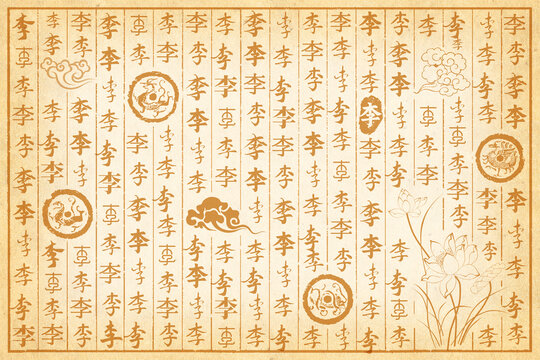 李李李李李李李李李李
李李李李李李李李李
李李李李李李
李李李李李
李李李李李李李李李李
李李李李李李李李李李李李
李李李李李李李李李李李李
李李李李李李李李李李
李李李李李李李李李李李李
李李李李李李李李李李李李
李李李李李李李李李李李
李李李李李李李李李李
李李李李李李李李李李
李李李李李李李李李李
李李李李李李李李李李李李
李李李李李李李李李李李
李李李李李李李李李
李李李李李李李李李李李李